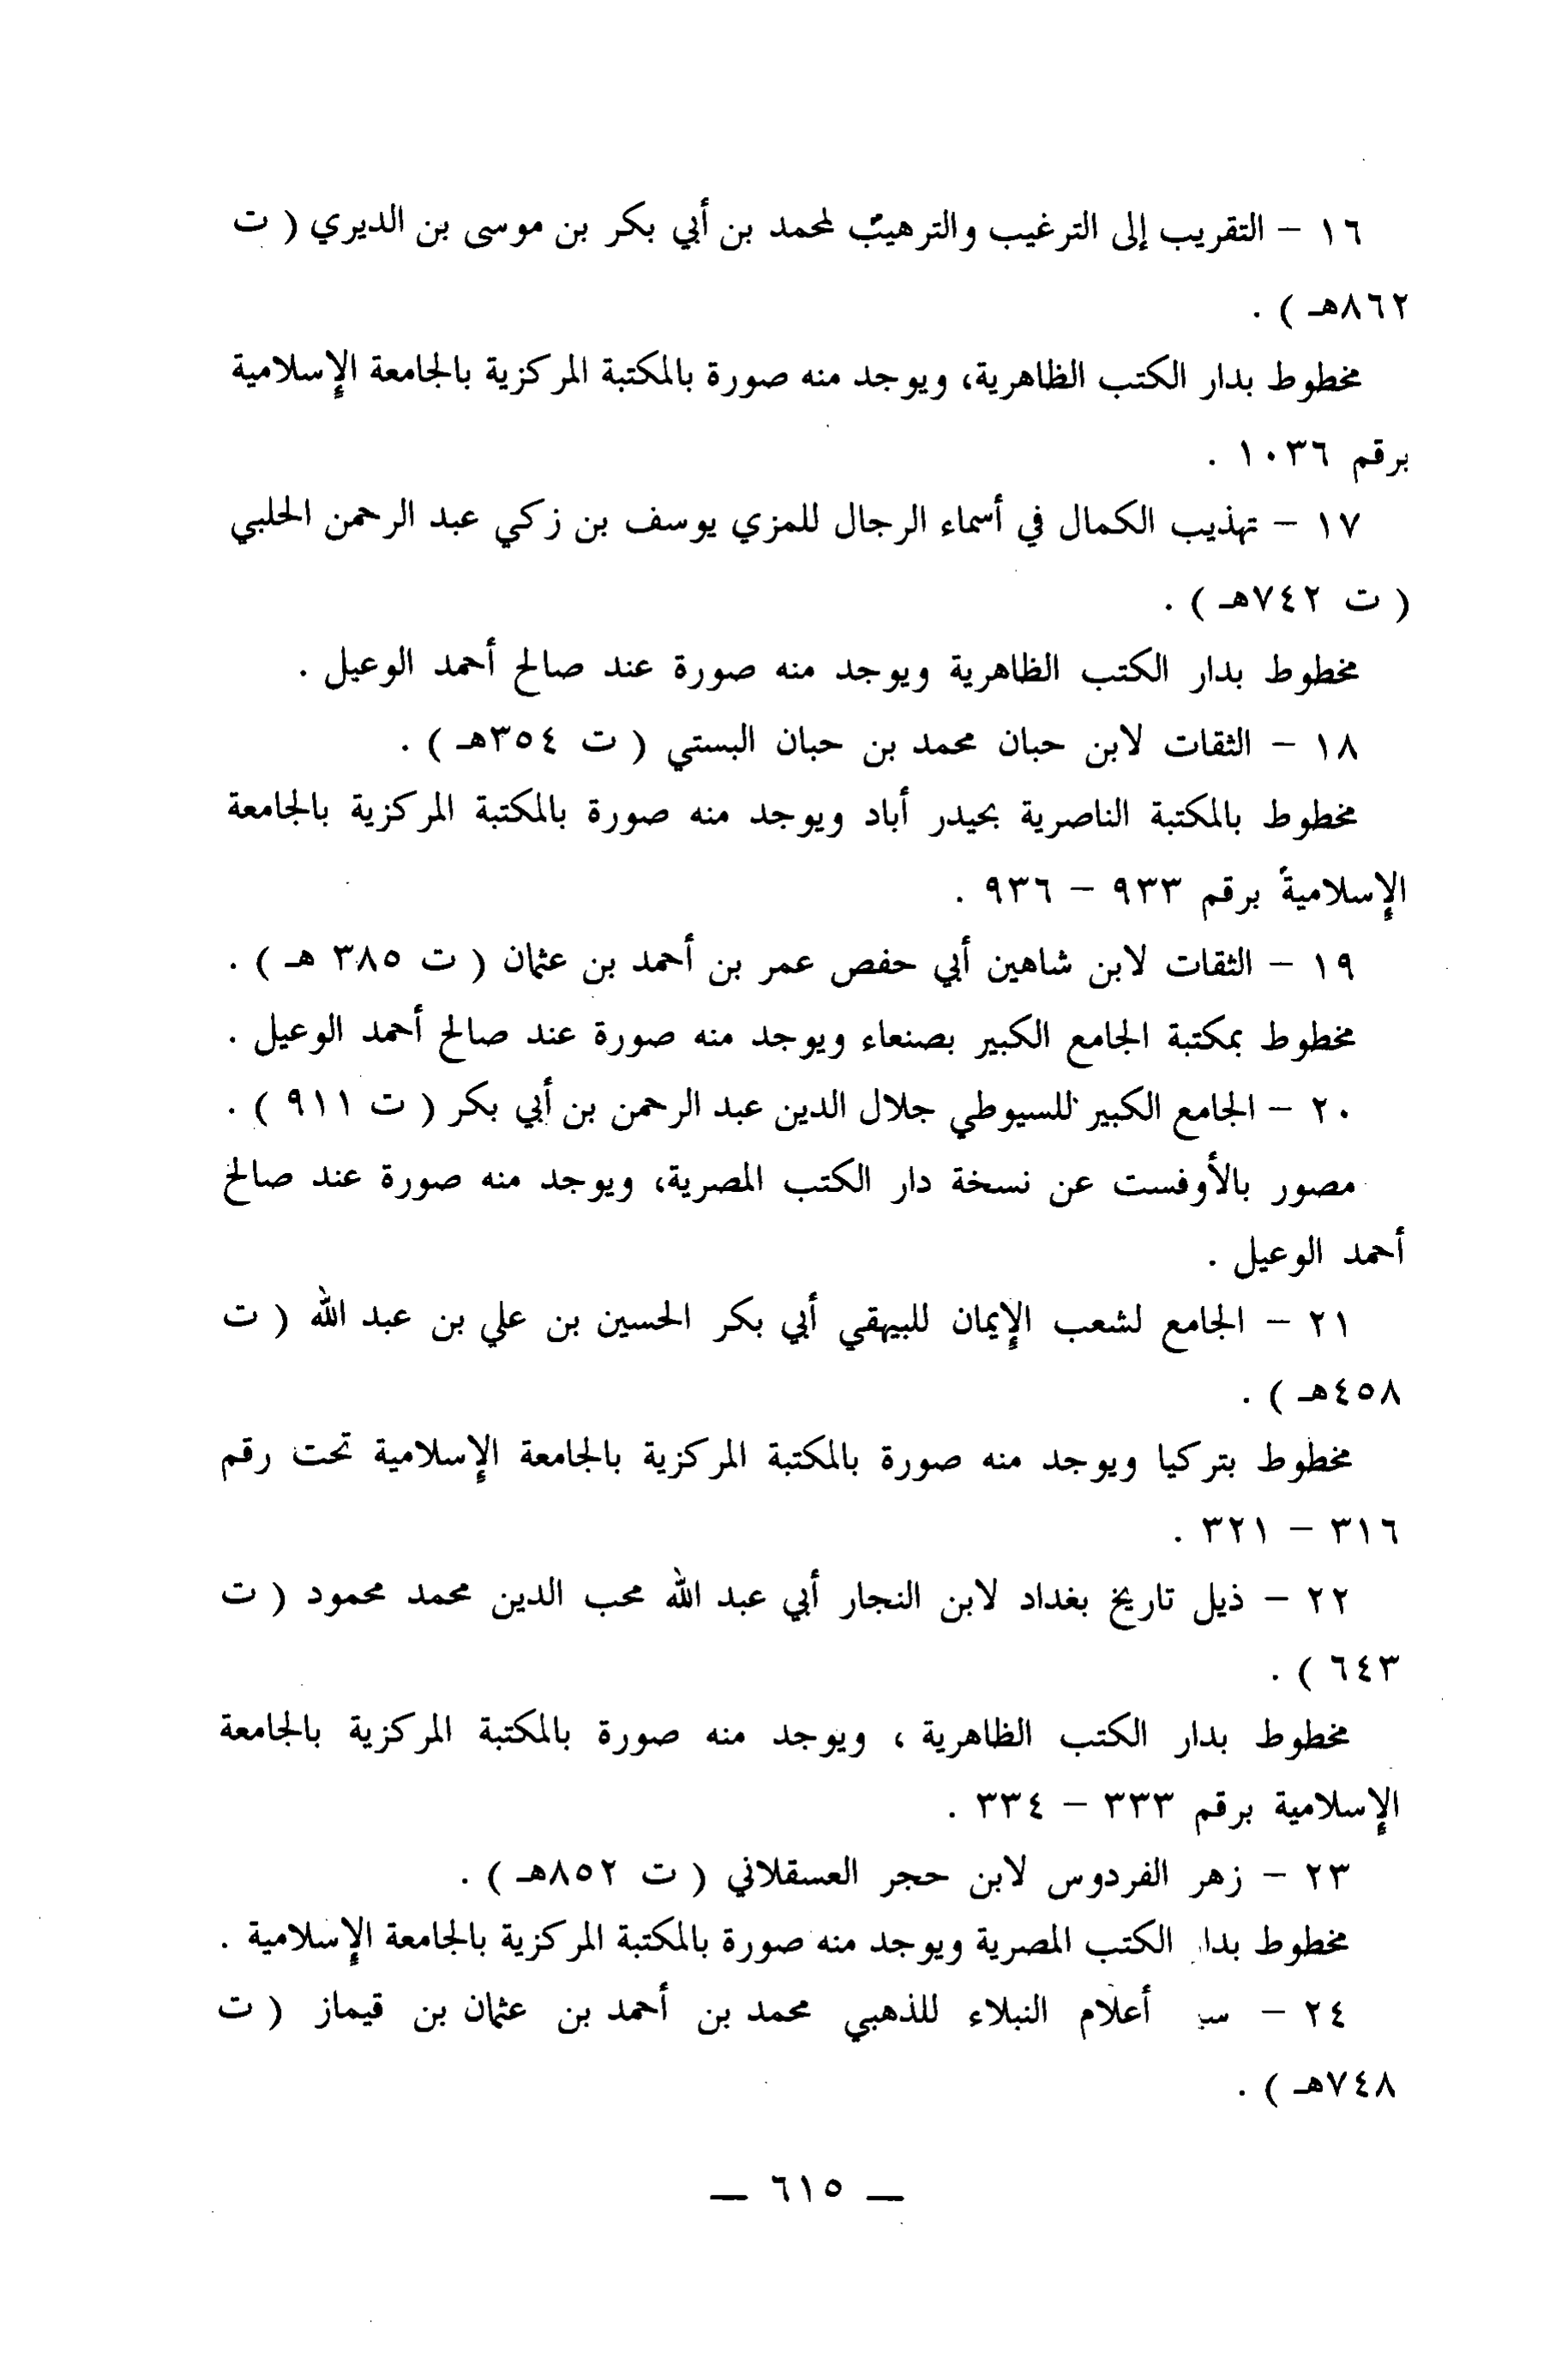 ١٦ – التقريب إلى الترغيب والترهيب لمحمد بن أبي بكر بن موسى بن الديري ( ت
٨٦٢هـ ) .
مخطوط بدار الكتب الظاهرية، ويوجد منه صورة بالمكتبة المركزية بالجامعة الإسلامية
برقم ١٠٣٦ .
١٧ – تهذيب الكمال في أسماء الرجال للمزي يوسف بن زكي عبد الرحمن الحلبي
( ت ٧٤٢هـ ) .
مخطوط بدار الكتب الظاهرية ويوجد منه صورة عند صالح أحمد الوعيل .
١٨ – الثقات لابن حبان محمد بن حبان البستي ( ت ٣٥٤هـ ) .
مخطوط بالمكتبة الناصرية بحيدر أباد ويوجد منه صورة بالمكتبة المركزية بالجامعة
الإسلامية برقم ٩٣٣ – ٩٣٦ .
١٩ – الثقات لابن شاهين أبي حفص عمر بن أحمد بن عثمان ( ت ٣٨٥ هـ ) .
مخطوط بمكتبة الجامع الكبير بصنعاء ويوجد منه صورة عند صالح أحمد الوعيل .
٢٠ – الجامع الكبير للسيوطي جلال الدين عبد الرحمن بن أبي بكر ( ت ٩١١ ) .
مصور بالأوفست عن نسخة دار الكتب المصرية، ويوجد منه صورة عند صالح
أحمد الوعيل .
٢١ – الجامع لشعب الإيمان للبيهقي أبي بكر الحسين بن علي بن عبد الله ( ت
٤٥٨هـ ) .
مخطوط بتركيا ويوجد منه صورة بالمكتبة المركزية بالجامعة الإسلامية تحت رقم
٣١٦ – ٣٢١ .
٢٢ – ذيل تاريخ بغداد لابن النجار أبي عبد الله محب الدين محمد محمود ( ت
٦٤٣ ) .
مخطوط بدار الكتب الظاهرية ، ويوجد منه صورة بالمكتبة المركزية بالجامعة
الإسلامية برقم ٣٣٣ – ٣٣٤ .
٢٣ – زهر الفردوس لابن حجر العسقلاني ( ت ٨٥٢هـ ) .
مخطوط بدار الكتب المصرية ويوجد منه صورة بالمكتبة المركزية بالجامعة الإسلامية .
٢٤ – أعلام النبلاء للذهبي محمد بن أحمد بن عثمان بن قيماز ( ت
٧٤٨هـ ) .
— ٦١٥ —